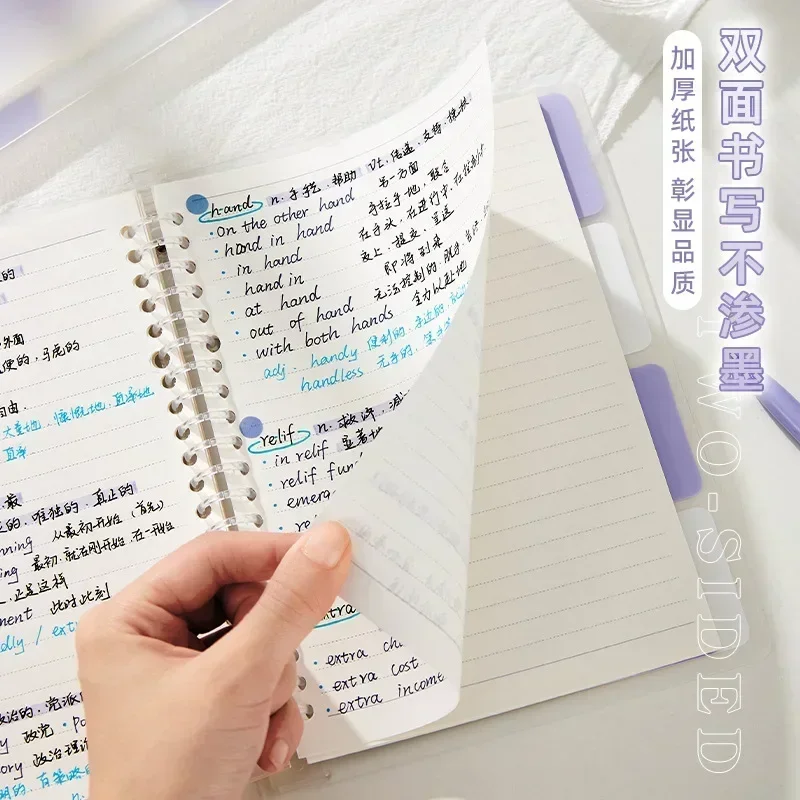 双面书写不渗墨
加厚纸张 彰显品质
TWO-SIDED
hand n. 手艺, 帮助 vt. 传递, 支持, 搀扶
· On the other hand 另一方面
· hand in hand 手拉手地, 联合
· in hand 在手头, 在进行中, 在控制中
· hand in 交上, 提交, 呈送
· at hand 即将到来
· out of hand 无法控制的, 脱手
· with both hands 全力以赴地
adj. handy 便利的, 手边的,
handless 无手的,
relif n. 救济,
· in relif 显著地
· relif fun
· emerg
extra
· extra
· extra cost
· extra income
的
外面
便的, 马虎的
自由.
大量地, 慷慨地, 直率地
直率
最
的, 唯独的, 真正的
nning 从最初开始 (首先)
ing 最初, 就在刚开始, 在一开始
, 正是这样
ment 此时此刻
dly / extr
政治的, 党派
y 政党 · Po
ory 政治理论